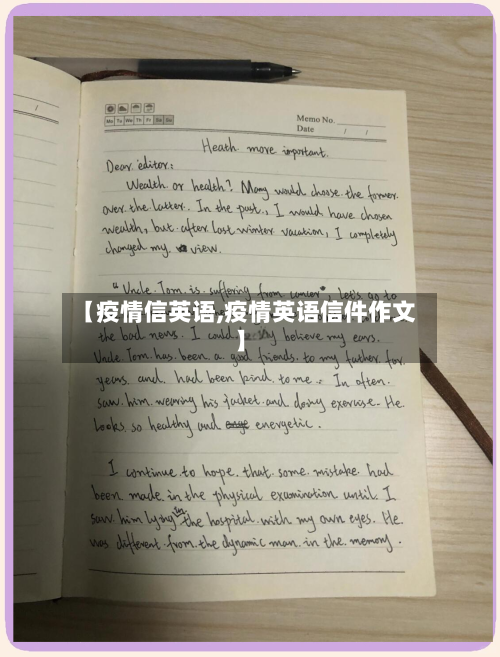 Mo Tu We Th Fr Sa Su
Memo No.
Date / /
Heath more important.
Dear editor:
Wealth or health? Many would choose the former
over the latter. In the past, I would have chosen
wealth, but after last winter vacation, I completely
changed my view.
"Uncle Tom is suffering from cancer", let's go to
【疫情信英语,疫情英语信件作文
】
the bad news. I could believe my ears.
Uncle Tom has been a good friends to my father for
years and had been kind to me. In often
saw him wearing his jacket and doing exercise. He
looks so healthy and energetic.
I continue to hope that some mistake had
been made in the physical examination until I
saw him lying in the hospital with my own eyes. He
was different from the dynamic man in the memory.